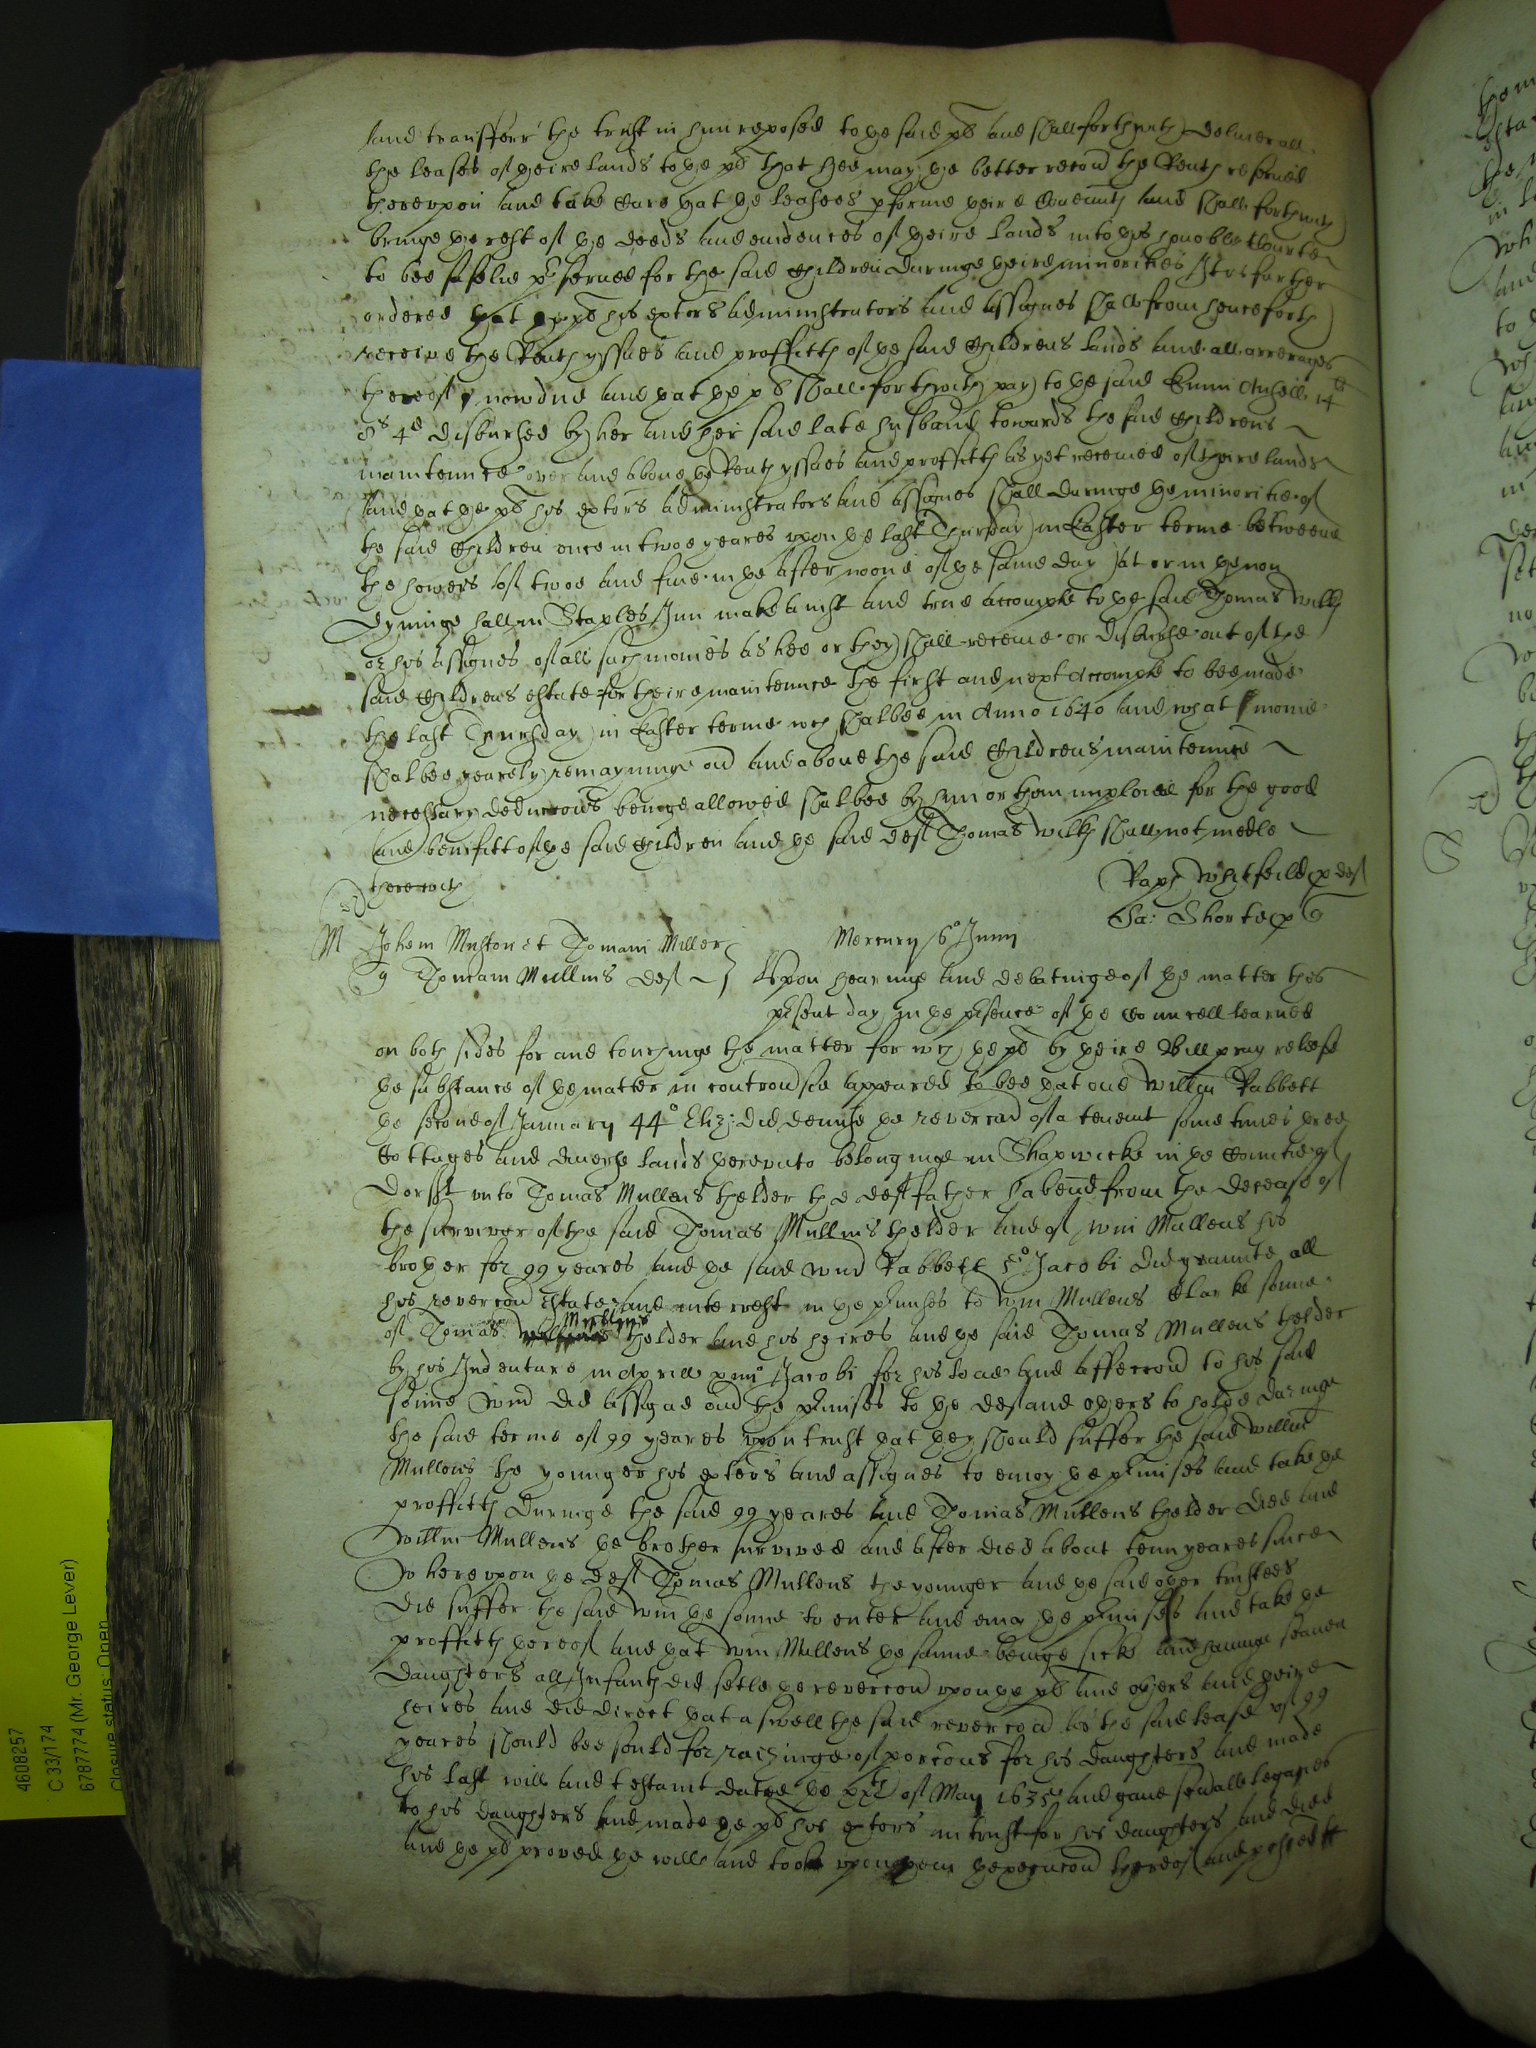 and transferr the trust in him reposed to the said pl and shall forthwith deliver all
the leases of theire lands to the pl that hee may the better recover the Rents reserved
thereupon and take Care that the leasees pforme theire Covenants and shall forthwith
bringe the rest of the deeds and evidences of theire lands into this honoble Courte
to bee safelie pserved for the said Children duringe theire minorities It is further
ordered that the pl his exrs administrators and assignes shall from henceforth
receive the Rents yssues and proffitts of the said Childrens lands and all arrerages
thereof now due and that the pl shall forthwith pay to the said 14li
8s 4d disbursed by her and her said late husband towards the said Childrens
maintennce over and above the Rents yssues and proffitts as yet receaved of theire lands
and that the pl his exrs administrators and assignes shall duringe the minoritie of
the said Children once in twoe yeares upon the last Thursday in Easter terme betweene
the howers of twoe and five in the afternoone of the same day at or in the now
dyninge hall in Staples Inn make a iust and true accompte to the said Thomas Wilks
or his assignes of all such monies as hee or they shall receave or disburse out of the
said Childrens estate for theire maintennce the first and next accompte to bee made
the last Thursday in Easter terme wch shalbee in Anno 1640 and what monie
shalbee yearely remayninge ov and above the said Childrens maintennce
necessary deduccons beinge allowed shalbee by him or them imploied for the good
and benefitt of the said Children and the said deft Thomas Wilks shall not medle
therewith
Raph Whitfeild p def
Sa: Shorte p q
M Johem Muston et Thomam Miller
q Thomam Mullins def
Mercury 6o Juny
Upon hearinge and debatinge of the matter this
psent day in the psence of the Councell learned
on both sides for and touchinge the matter for wch the pl by theire Bill pray releife
the substance of the matter in controvsie appeared to bee that one Willm Rabbett
the second of January 44o Eliz: did demise the revercon of a tenemt some times three
Cottages and diverse lands thereunto belonginge in Shapwicke in the Countie of
Dorsst unto Thomas Mullens thelder the deft father habend from the decease of
the surviver of the said Thomas Mullins thelder and of Wm Mullens his
brother for 99 yeares and the said Wm Rabbett 5o Jacobi did graunte all
his revercon estate and interrest in the pmises to Wm Mullens Clarke sonne
of Thomas Mullens thelder and his heires and the said Thomas Mullens thelder
by his Indenture in Aprill primo Jacobi for his love and affeccon to his said
sonne Wm did assigne ov the pmises to the def and others to holde duringe
the said terme of 99 yeares upon trust that they should suffer the said Willm
Mullens the younger his exrs and assignes to enioy the pmises and take the
proffitts duringe the said 99 yeares and Thomas Mullens thelder died and
Willm Mullens the brother survived and after died about tenn yeares since
Whereupon the deft Thomas Mullens the younger and the said other trustees
did suffer the said Wm the sonne to enter and enioy the pmises and take the
proffitts thereof and that Wm Mullens the sonne beinge sicke and havinge seaven
daughters all Infants did setle the revercon upon the pl and others and theire
heires and did direct that aswell the said revercon as the said lease of 99
yeares should bee sould for raisinge of porcons for his daughters and made
his last will and testamt dated the xxth of May 1635 and gave sevall legacies
to his daughters and made the pl his exrs in trust for his daughters and died
and the pl proved the will and tooke upon them thexecucon thereof and
4608257
C 33/174
6787774 (Mr. George Lever)
Closure status: Open